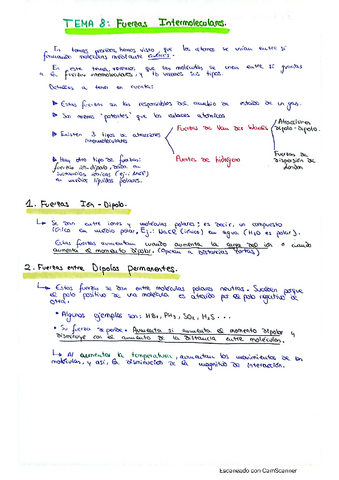 TEMA 8: Fuerzas Intermoleculares.
En temas previos, hemos visto, que los átomos se unían entre sí
formando moléculas mediante enlaces.
En este tema, veremos que las moléculas se unen entre sí gracias
a las fuerzas intermoleculares, y los tipos.
Detalles a tener en cuenta:
▸ Estas fuerzas son las responsables del cambio de estado de un gas.
▸ Son menos "potentes" que los enlaces atómicos
▸ Existen 3 tipos de atracciones
intermoleculares
Fuerzas de Van der Waals
Atracciones
dipolo-dipolo.
Fuerzas de
dispersión de
London
Puentes de hidrógeno
▸ Hay otro tipo de fuerzas:
fuerzas ion-dipolo, dada en
sustancias iónicas (ej.: NaCl)
en medios líquidos
polares.
1. Fuerzas Ion-Dipolo.
↳ Se dan entre iones y moléculas polares; es decir, un compuesto
iónico en medio polar. Ej.: NaCl (iones) en agua (H2O es polar).
Estas fuerzas aumentan cuando aumenta la carga del ion o cuando
aumenta el momento dipolar. (Operan a distancias cortas)
2. Fuerzas entre Dipolos Permanentes.
↳ Estas fuerzas se dan entre moléculas polares neutras. Suceden porque
el polo positivo de una molécula es atraído por el polo negativo de
otra.
• Algunos ejemplos son: HBr, PH3, SO2, H2S...
• Su fuerza depende. Aumenta si aumenta el momento dipolar y
disminuye con el aumento de la distancia entre moléculas.
↳ Al aumentar la temperatura, aumentan los movimientos de las
moléculas, y así, la disminución de la magnitud de interacción.
Escaneado con CamScanner